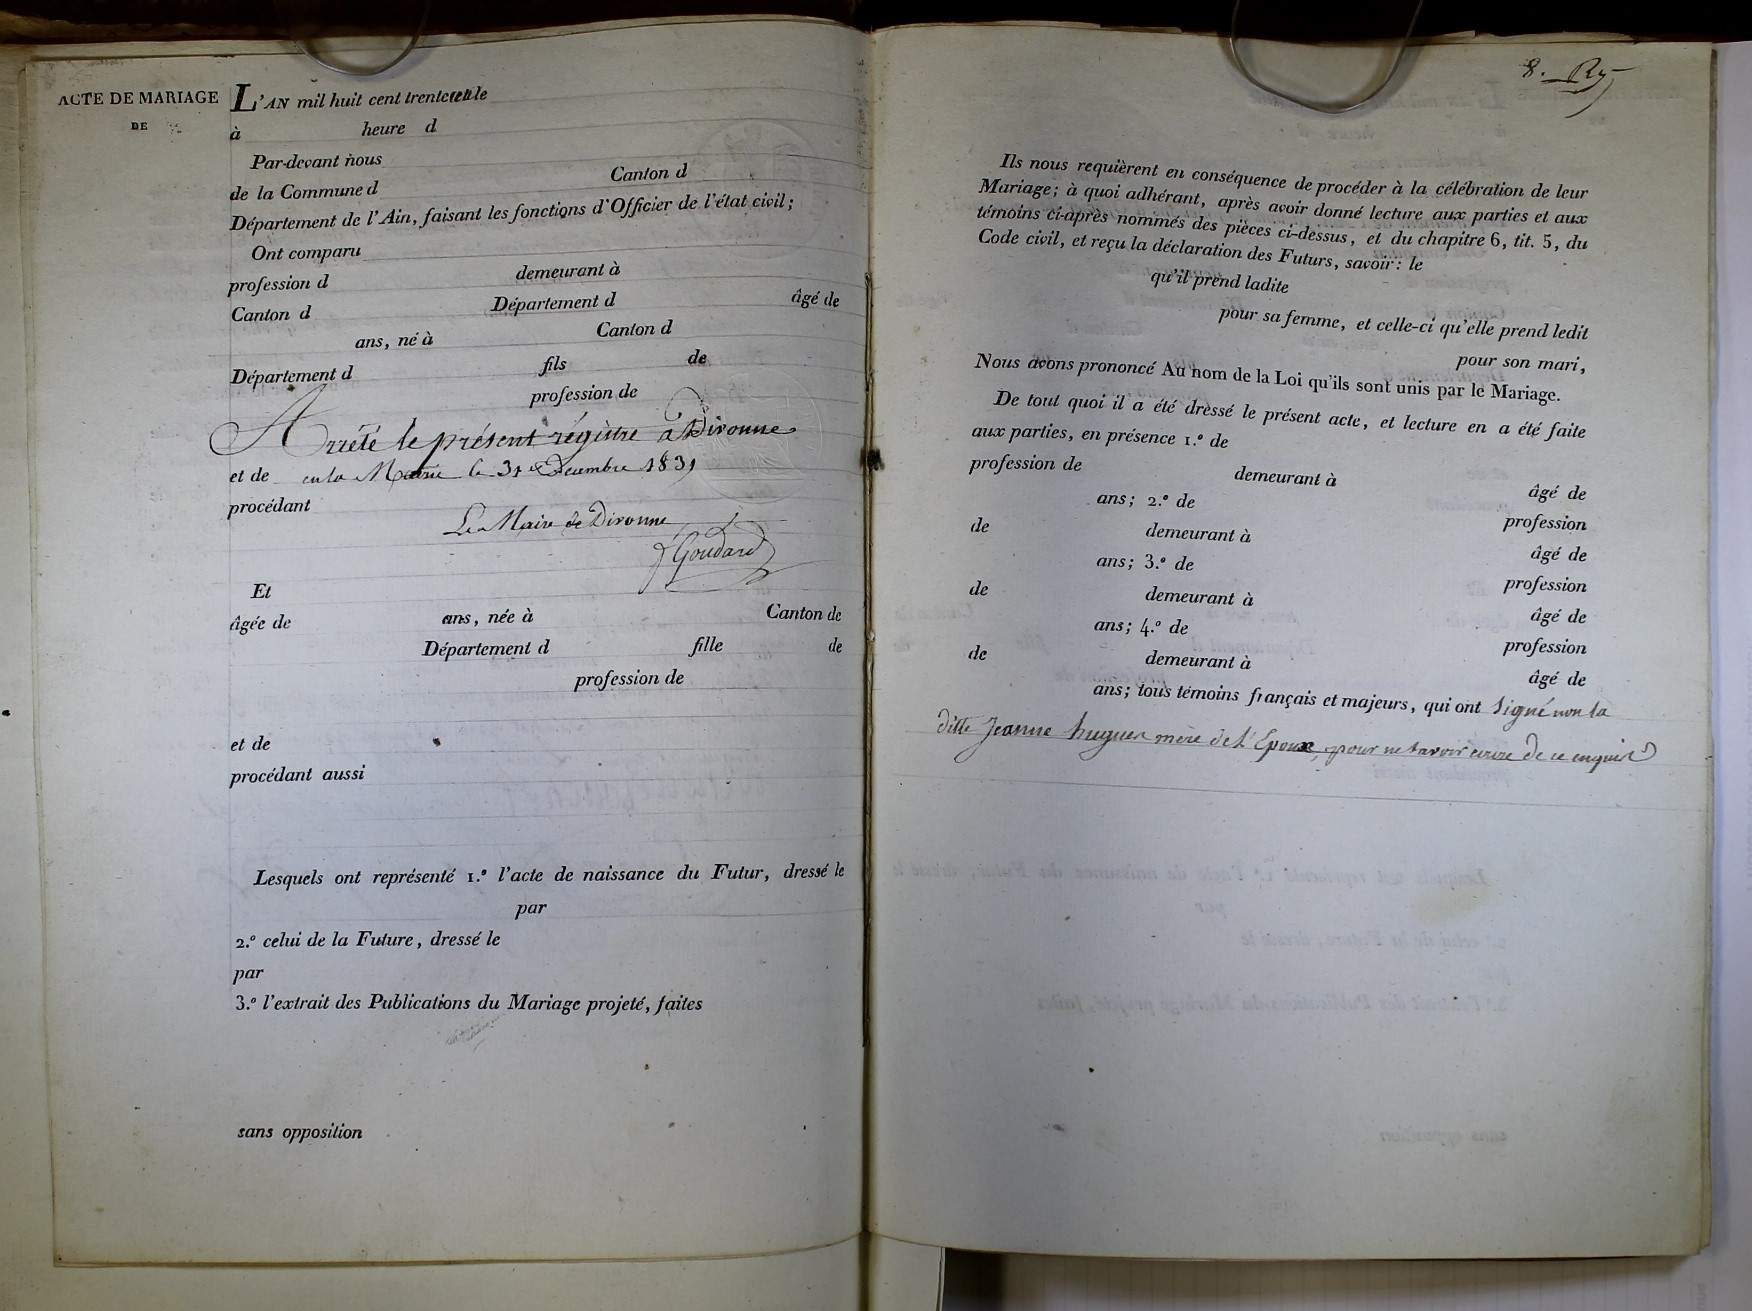 ACTE DE MARIAGE
DE
L'AN mil huit cent trente
à heure d
Par-devant nous
de la Commune d Canton d
Département de l'Ain, faisant les fonctions d'Officier de l'état civil;
Ont comparu
profession d demeurant à
Canton d Département d âgé de
ans, né à Canton d
Département d fils de
profession de
Arrêté le présent régistre à Divonne
et de en la Mairie le 31 Decembre 1831
procédant
Le Maire de Divonne
Goudard
Et
âgée de ans, née à Canton de
Département d fille de
profession de
et de
procédant aussi
Lesquels ont représenté 1.º l'acte de naissance du Futur, dressé le
par
2.º celui de la Future, dressé le
par
3.º l'extrait des Publications du Mariage projeté, faites
sans opposition
8.
Ils nous requièrent en conséquence de procéder à la célébration de leur
Mariage; à quoi adhérant, après avoir donné lecture aux parties et aux
témoins ci-après nommés des pièces ci-dessus, et du chapitre 6, tit. 5, du
Code civil, et reçu la déclaration des Futurs, savoir: le
qu'il prend ladite
pour sa femme, et celle-ci qu'elle prend ledit
pour son mari,
Nous avons prononcé Au nom de la Loi qu'ils sont unis par le Mariage.
De tout quoi il a été dressé le présent acte, et lecture en a été faite
aux parties, en présence 1.º de
profession de demeurant à âgé de
ans; 2.º de profession
de demeurant à âgé de
ans; 3.º de profession
de demeurant à âgé de
ans; 4.º de profession
de demeurant à âgé de
ans; tous témoins français et majeurs, qui ont signé non la
ditte Jeanne hugues mère de l'Epoux, pour ne savoir ecrire de ce enquise